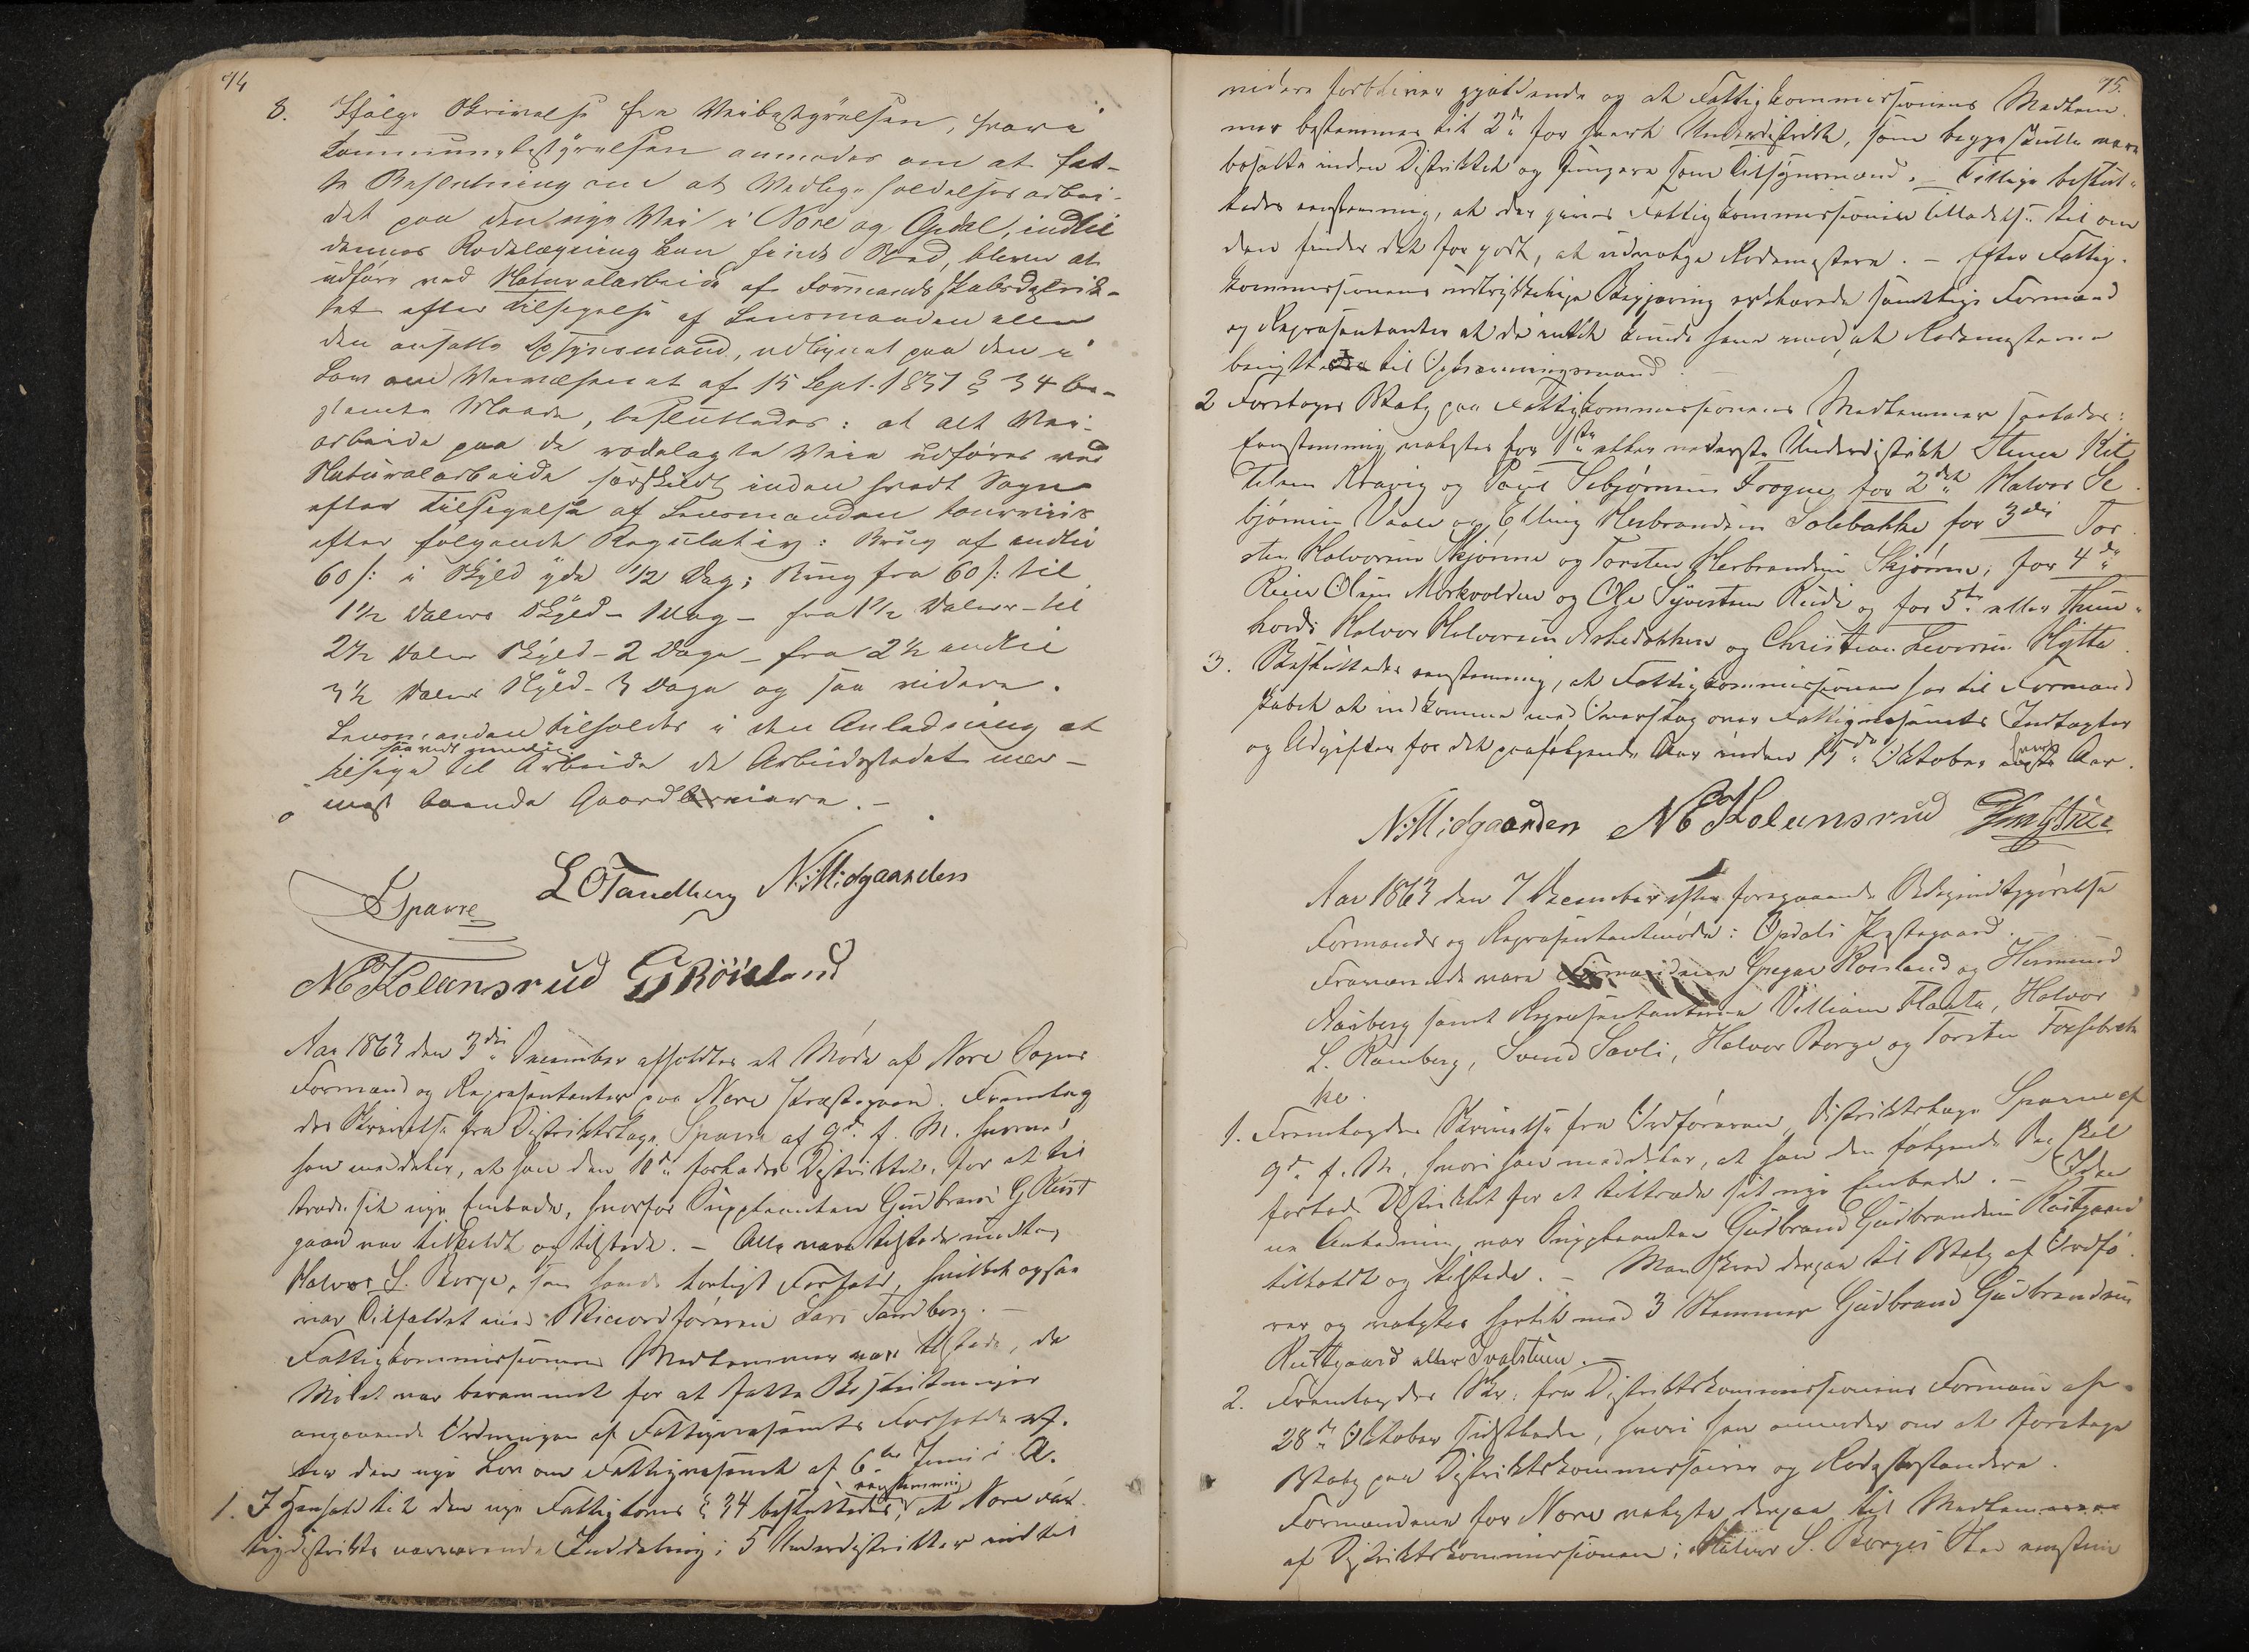 74
8. Ifølge Skrivelse fra Veibestyrelsen, hvori
Kommunebestyrelsen anmodes om at fat-
te Beslutning om at Vedligeholdelsesarbei-
det paa den nye Vei i Nore og Opdal, indtil
dennes Rodelægning kan finde Sted, bliver at
udføre ved Naturalarbeide af Formandskabsdistrik-
tet efter Tilsigelse af Lensmanden eller
den ansatte Opsynsmand, udlignet paa den i
Lov om Veivæsenet af 15 Sept. 1851 § 34 be-
stemte Maade, besluttedes: at alt Vei-
arbeide paa de rodelagte Veie udføres ved
Naturalarbeide særskilt inden hvert Sogn
efter Tilsigelse af Lensmanden tourviis
efter følgende Regulativ: Brug af indtil
60 s: i Skyld yde 1/2 Dag; Brug fra 60 s: til
1 1/2 Dalers Skyld - 1 Dag - fra 1 1/2 Daler - til
2 1/2 Daler Skyld - 2 Dage - fra 2 1/2 indtil
3 1/2 Dalers Skyld - 3 Dage og saa videre.
Lensmanden tilholdes i den Anledning at
saavidt muligt
tilsige til Arbeide de Arbeidsstedet nær-
mest boende Gaardbrugere. -
S Sparre LOTandberg N: Midgaarden
NEKolansrud GRöisland
Aar 1863 den 3die December afholdtes et Møde af Nore Sogns
Formænd og Repræsentanter paa Nore Præstegaard. Fremlag-
des Skrivelse fra Distriktslæge Sparre af 9de f. M. hvori
han meddeler, at han den 10de forlader Distriktet, for at til
træde sit nye Embede, hvorfor Suppleanten Gudbrand G Rust
gaard var tilkaldt og tilstede. - Alle vare tilstede undtag
Halvor S. Borge, som havde lovligt Forfald, hvilket ogsaa
var Tilfældet med Viceordføreren Lars Tandberg. -
Fattigkommissionens Medlemmer var tilstede, da
Mødet var berammet for at fatte Beslutninger
angaaende Ordningen af Fattigvæsenets Forholde ef-
ter den nye Lov om Fattigvæsenet af 6te Juni i A.
1. I Henhold til den nye Fattiglovs § 34 besluttedes eenstemmig, at Nore Fat-
tigdistrikts nærværende Inddeling i 5 Underdistrikter indtil
75.
videre forbliver gjældende og at Fattigkommissionens Medlem-
mer bestemmes til 2de for hvert Underdistrikt, som begge skulle være
bosatte inden Distriktet og fungere som Tilsynsmænd. - Tillige beslut-
tedes eenstemmig, at der gives Fattigkommissionen Tilladelse til om
den finder det for godt, at udvælge Rodemestere. - Efter Fattig-
kommissionens udtrykkelige Begjæring erklærede samtlige Formænd
og Repræsentanter at de intet kunde have imod, at Rodemesterne
benyttes til Opkrævningsmænd.
2 Foretoges Valg paa Fattigkommissionens Medlemmer saaledes:
Eenstemmig valgtes for 1ste eller nederste Underdistrikt Steen Kit
telsen Kravig og Paul Sebjørnsen Frogne, for 2det Halvor Se
bjørnsen Vaale og Elling Herbrandsen Solebakke for 3die Tor
sten Halvorsen Skjønne og Torsten Herbrandsen Skjønne; for 4de
Reier Olsen Mørkvolden og Ole Syversen Rude og for 5te eller Thun-
hovds Halvor Halvorsen og Christian Leversen Hytta.
3. Besluttedes eenstemmig, at Fattigkommissionen har til Formand
skabet at indkomme med Overslag over Fattigvæsenets Indtægter
og Udgifter for det paafølgende Aar inden 15de Oktober hvert Aar.
N: Midgaarden NEKolansrud
Aar 1863 den 7 December efter foregaaende Bekjendtgjørelse
Formands og Repræsentantmøde i Opdals Præstegaard.
Fraværende vare Formændene Gregar Røisland og Hermund
Aasberg samt Repræsentanterne Villiam Flaata, Halvor
L. Ramberg, Svend Savli, Halvor Borge og Torsten Torsebrek
ke.
1. Fremlagdes Skrivelse fra Ordføreren, Distriktslæge Sparre af
9de f. M., hvori han meddeler, at han den følgende Dag skal
forlade Distriktet for at tiltræde sit nye Embede. - I den-
ne Anledning var Suppleanten Gudbrand Gudbrandsen Rustgaard
tilkaldt og tilstede. - Man skred derpaa til Valg af Ordfø-
rer og valgtes hertil med 3 Stemmer Gudbrand Gudbrandsen
Rustgaard eller Evalstuen. -
2. Fremlagdes Skr: fra Distriktskommissionens Formand af
28de Oktober sidstleden, hvori han anmoder om at foretage
Valg paa Distriktskommissairer og Rodeforstandere.
Formændene for Nore valgte derpaa til Medlemmer
af Distriktskommissionen i Halvor S. Borges Sted eenstem